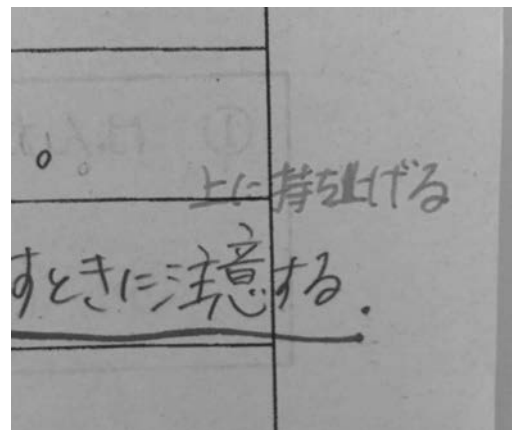 。
上に持ち上げる
すときに注意する.